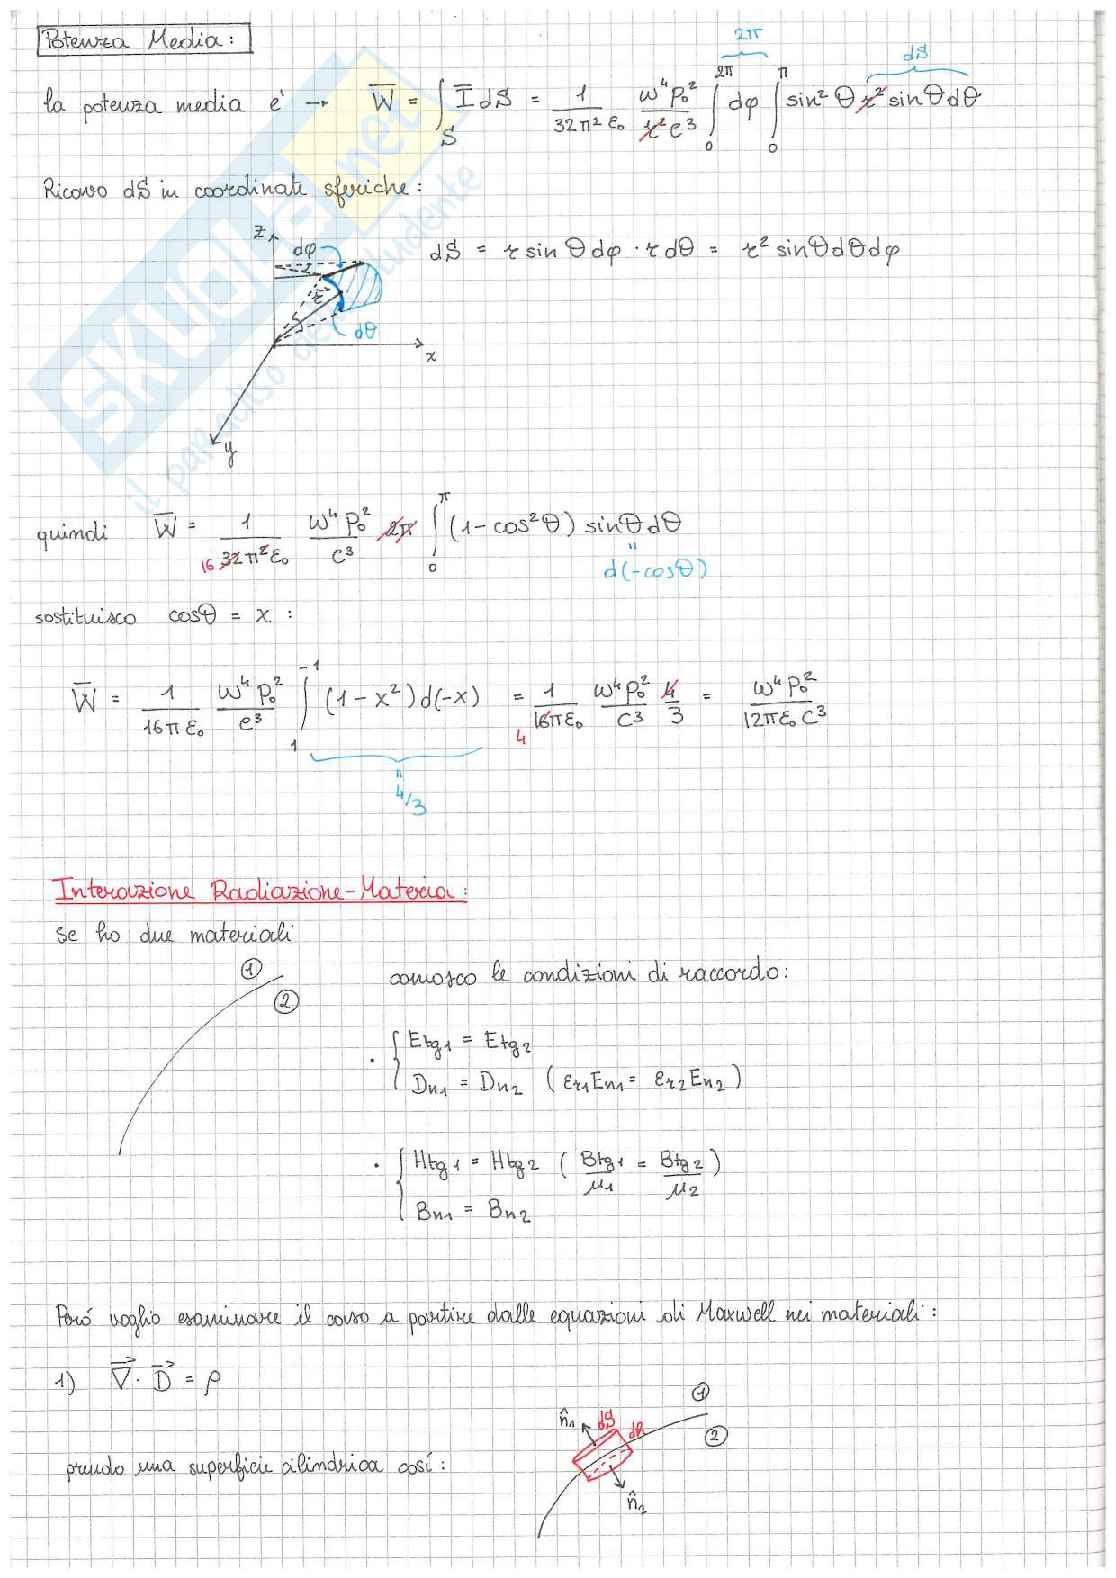 Potenza Media:
la potenza media è → W̅ = ∫_S I̅ dS = 1/(32π²ε₀) ω⁴p₀²/(r²c³) ∫₀^2π dφ ∫₀^π sin²θ r² sinθ dθ
2π
dS
Ricavo dS in coordinate sferiche:
dS = r sinθ dφ · r dθ = r² sinθ dθ dφ
z
dφ
r
dθ
x
y
quindi W̅ = 1/(32π²ε₀) ω⁴p₀²/c³ 2π ∫₀^π (1-cos²θ) sinθ dθ
16
=
d(-cosθ)
sostituisco cosθ = x :
W̅ = 1/(16πε₀) ω⁴p₀²/c³ ∫₁^-1 (1-x²) d(-x) = 1/(16πε₀) ω⁴p₀²/c³ 4/3 = ω⁴p₀²/(12πε₀c³)
4
=
4/3
Interazione Radiazione-Materia:
se ho due materiali
1
2
conosco le condizioni di raccordo:
· { Etg₁ = Etg₂
Dn₁ = Dn₂ (εr₁En₁ = εr₂En₂)
· { Htg₁ = Htg₂ (Btg₁/μ₁ = Btg₂/μ₂)
Bn₁ = Bn₂
Però voglio esaminare il caso a partire dalle equazioni di Maxwell nei materiali:
1) ∇⃗ · D⃗ = ρ
prendo una superficie cilindrica così:
n̂₁ dS dh
1
2
n̂₂
SKUOLA.net
il paradiso dello studente